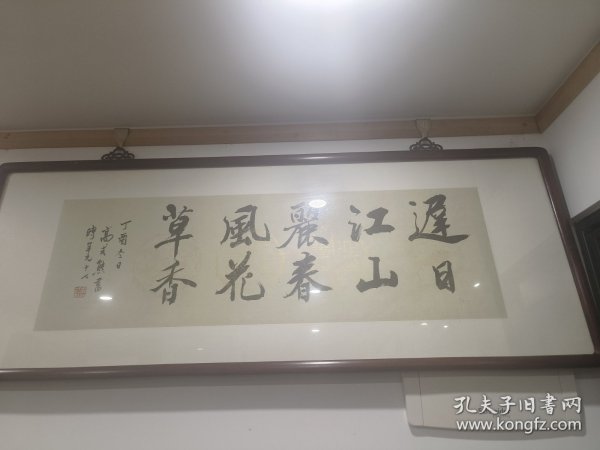 遲日
江山
麗春
風花
草香
丁酉冬日
高式熊書
時年九十七
孔夫子旧书网
www.kongfz.com